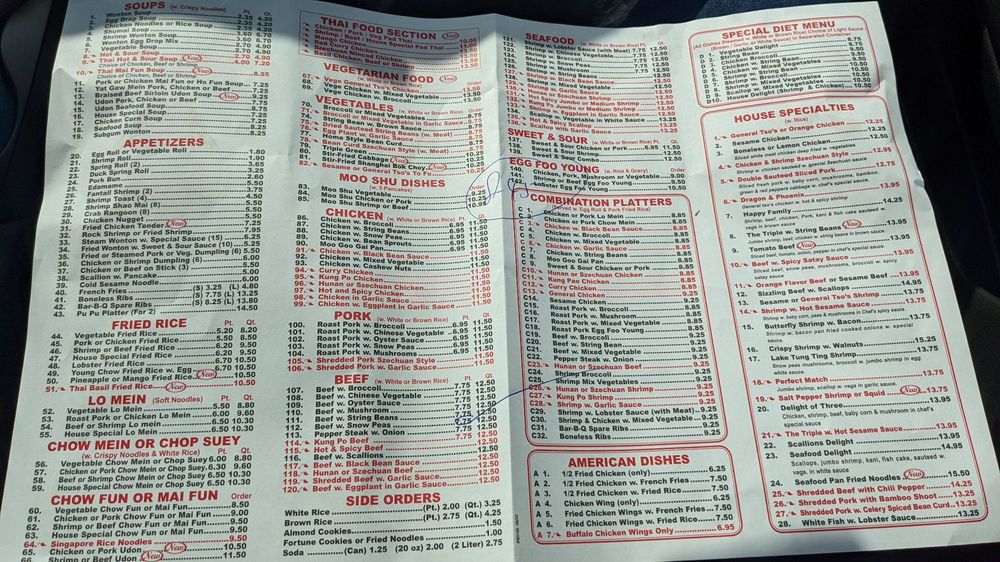 SOUPS (w. Crispy Noodles) Pt. Qt.
1. Wonton Soup 2.35 4.20
2. Egg Drop Soup 2.35 4.20
3. Chicken Noodles or Rice Soup
4. Shumai Soup
5. Shrimp Wonton Soup
6. Wonton Egg Drop Mix
7. Vegetable Soup
8. Hot & Sour Soup
9. Thai Hot & Sour Soup 4.00 7.20
Choice of Chicken, Beef or Shrimp
10. Thai Mai Fun Soup 8.55
Choice of Chicken, Beef or Shrimp
11. Pork or Chicken Mai Fun or Ho Fun Soup 7.25
12. Yat Gaw Mein Pork, Chicken or Beef 7.25
13. Braised Beef Sirloin Udon Soup 9.25
14. Udon Pork, Chicken or Beef 7.75
15. Udon Seafood Soup 8.75
16. House Special Soup 7.25
17. Chicken Corn Soup 7.25
18. Seafood Soup 8.25
19. Subgum Wonton 8.25
APPETIZERS
20. Egg Roll or Vegetable Roll 1.80
21. Shrimp Roll 1.90
22. Spring Roll (2) 3.65
23. Duck Spring Roll 3.25
24. Pork Bun
25. Edamame
26. Fantail Shrimp (2)
27. Shrimp Toast (4)
28. Shrimp Shao Mai (8)
29. Crab Rangoon (8)
30. Chicken Nugget
31. Fried Chicken Tender New
32. Rock Shrimp or Fried Shrimp 7.95
33. Steam Wonton w. Special Sauce (15) 6.25
34. Fried Wonton w. Sweet & Sour Sauce (10) 5.25
35. Fried or Steamed Pork or Veg. Dumpling (6) 5.50
36. Chicken or Shrimp Dumpling (6) 5.50
37. Chicken or Beef on Stick (3) 5.50
38. Scallion w. Pancake 5.00
39. Cold Sesame Noodle 6.00
40. French Fries (S) 3.25 (L) 4.80
41. Boneless Ribs (S) 7.75 (L) 13.25
42. Bar-B-Q Spare Ribs (S) 8.25 (L) 13.80
43. Pu Pu Platter (For 2) 14.50
FRIED RICE Pt. Qt.
44. Vegetable Fried Rice 5.20 8.20
45. Pork or Chicken Fried Rice 5.50 8.50
46. Shrimp or Beef Fried Rice 6.20 9.50
47. House Special Fried Rice 6.20 9.50
48. Lobster Fried Rice 6.70 10.50
49. Young Chow Fried Rice w. Egg 6.70 10.50
50. Pineapple or Mango Fried Rice New 10.50
51. Thai Basil Fried Rice New 10.50
LO MEIN (Soft Noodles) Pt. Qt.
52. Vegetable Lo Mein 5.50 8.80
53. Roast Pork or Chicken Lo Mein 6.00 9.60
54. Beef or Shrimp Lo Mein 6.50 10.30
55. House Special Lo Mein 6.50 10.30
CHOW MEIN OR CHOP SUEY
(w. Crispy Noodles & White Rice) Pt. Qt.
56. Vegetable Chow Mein or Chop Suey 6.00 8.80
57. Chicken or Pork Chow Mein or Chop Suey 6.30 9.60
58. Beef or Shrimp Chow Mein or Chop Suey 6.50 10.30
59. House Special Chow Mein or Chop Suey 6.50 10.30
CHOW FUN OR MAI FUN Order
60. Vegetable Chow Fun or Mai Fun 8.50
61. Chicken or Pork Chow Fun or Mai Fun 9.00
62. Shrimp or Beef Chow Fun or Mai Fun 9.50
63. House Special Chow Fun or Mai Fun 9.50
64. Singapore Rice Noodles 9.50
65. Chicken or Pork Udon New 10.50
66. Shrimp or Beef Udon New 11.50
THAI FOOD SECTION
Chicken / Pork / Veg Pad Thai
Red Curry Chicken
Chicken, Beef or Shrimp
VEGETARIAN FOOD
67. Vege Chicken w. Broccoli
68. Vege General Tso's Chicken
69. Vege Chicken w. Mixed Vegetable 13.50
VEGETABLES (w. White or Brown Rice) Order
70. Broccoli or Mixed Vegetable 8.75
74. Broccoli or Mixed Vegetable in Garlic Sauce 8.75
75. String Bean w. Brown Sauce 8.75
76. Dried Sauteed String Beans (w. Meat) 8.75
77. Egg Plant w. Garlic Sauce 8.75
78. Home Style Bean Curd 8.75
79. Bean Curd Szechuan Style (w. Meat) 8.75
80. Triple Green
81. Stir-Fried Cabbage New
Stir-Fried Shanghai Bok Choy New 10.25
82. Sesame or General Tso's To Fu 10.25
MOO SHU DISHES
(w. 5 Pancakes) Order
83. Moo Shu Vegetable 9.25
84. Moo Shu Chicken or Pork 10.25
85. Moo Shu Shrimp or Beef 10.95
CHICKEN (w. White or Brown Rice) Pt. Qt.
86. Chicken w. Broccoli 6.95 11.50
87. Chicken w. String Beans 6.95 11.50
88. Chicken w. Snow Peas 6.95 11.50
89. Chicken w. Bean Sprouts 6.95 11.50
90. Moo Goo Gai Pan 6.95 11.50
91. Chicken w. Black Bean Sauce 11.50
92. Chicken w. Mixed Vegetable 11.50
93. Chicken w. Cashew Nuts 11.50
94. Curry Chicken 11.50
95. Kung Po Chicken 11.50
96. Hunan or Szechuan Chicken 11.50
97. Hot and Spicy Chicken 11.50
98. Chicken in Garlic Sauce 11.50
99. Chicken w. Eggplant in Garlic Sauce 11.50
PORK (w. White or Brown Rice) Pt. Qt.
100. Roast Pork w. Broccoli 6.95 11.50
101. Roast Pork w. Chinese Vegetable 6.95 11.50
102. Roast Pork w. Oyster Sauce 6.95 11.50
103. Roast Pork w. Snow Peas 6.95 11.50
104. Roast Pork w. Mushrooms 6.95 11.50
105. Shredded Pork Szechuan Style 11.50
106. Shredded Pork w. Garlic Sauce 11.50
BEEF (w. White or Brown Rice) Pt. Qt.
107. Beef w. Broccoli 7.75 12.50
108. Beef w. Chinese Vegetable 7.75 12.50
109. Beef w. Oyster Sauce 7.75 12.50
110. Beef w. Mushroom 7.75 12.50
111. Beef w. String Beans 7.75 12.50
112. Beef w. Snow Peas 7.75 12.50
113. Pepper Steak w. Onion 7.75 12.50
114. Kung Po Beef 12.50
115. Hot & Spicy Beef 12.50
116. Beef w. Scallions 12.50
117. Beef w. Black Bean Sauce 12.50
118. Hunan or Szechuan Beef 12.50
119. Shredded Beef w. Garlic Sauce 12.50
120. Beef w. Eggplant in Garlic Sauce 12.50
SIDE ORDERS
White Rice (Pt.) 2.00 (Qt.) 3.25
Brown Rice (Pt.) 2.75 (Qt.) 4.25
Almond Cookies 1.00
Fortune Cookies or Fried Noodles 1.50
Soda (Can) 1.25 (20 oz) 2.00 (2 Liter) 2.75
SEAFOOD (w. White or Brown Rice) Pt. Qt.
121. Shrimp w. Lobster Sauce (with Meat) 7.75 12.50
122. Shrimp w. Broccoli 7.75 12.50
Shrimp w. Black Bean Sauce
Hunan or Szechuan Shrimp
Hot Spicy Jumbo or Medium Shrimp
132. Kung Po Jumbo or Medium Shrimp 12.50
133. Shrimp w. Eggplant in Garlic Sauce 12.50
134. Scallop w. Vegetable in White Sauce 13.25
135. Hot Spicy Scallop 13.25
136. Scallop with Garlic Sauce 13.25
SWEET & SOUR (w. White or Brown Rice) Pt. Qt.
137. Sweet & Sour Chicken or Pork 6.95 11.50
138. Sweet & Sour Shrimp 12.50
139. Sweet & Sour Combo 12.50
EGG FOO YOUNG (w. Rice & Gravy) Order
140. Chicken, Pork, Mushroom or Vegetable 9.00
141. Shrimp or Beef Egg Foo Young 9.50
Lobster Egg Foo Young 10.50
COMBINATION PLATTERS
(Served w. Egg Roll & Pork Fried Rice)
C 1. Chicken or Pork Lo Mein 8.85
C 2. Chicken or Pork Chow Mein 8.85
C 4. Chicken w. Black Bean Sauce 8.85
C 5. Chicken w. Broccoli 8.85
C 6. Chicken w. Garlic Sauce 8.85
C 7. Chicken w. String Beans 8.85
C 8. Moo Goo Gai Pan 8.85
C 9. Sweet & Sour Chicken or Pork 8.85
C10. Hunan or Szechuan Chicken 8.85
C11. Kung Pao Chicken 8.85
C12. Curry Chicken 8.85
C13. General Chicken 9.25
C14. Sesame Chicken 9.25
C15. Roast Pork w. Broccoli 8.85
C16. Roast Pork w. Mushroom 8.85
C17. Roast Pork w. Mixed Vegetable 8.85
C18. Roast Pork Egg Foo Young 8.85
C19. Beef w. Broccoli 9.25
C20. Beef w. String Bean 9.25
C21. Beef w. Mixed Vegetable 9.25
C22. Pepper Steak w. Onion 9.25
C23. Hunan or Szechuan Beef 9.25
C24. Shrimp Broccoli 9.25
C25. Shrimp Mix Vegetables 9.25
C26. Hunan or Szechuan Shrimp 9.25
C27. Kung Po Shrimp 9.25
C28. Shrimp w. Garlic Sauce 9.25
C29. Shrimp w. Lobster Sauce (with Meat) 9.25
C30. Shrimp & Chicken w. Mixed Vegetable 9.25
C31. Bar-B-Q Spare Ribs 9.25
C32. Boneless Ribs 9.25
AMERICAN DISHES
A 1. 1/2 Fried Chicken (only) 6.25
A 2. 1/2 Fried Chicken w. French Fries 7.50
A 3. 1/2 Fried Chicken w. Fried Rice 7.50
A 4. Chicken Wing (only) 6.25
A 5. Fried Chicken Wings w. French Fries 7.50
A 6. Fried Chicken Wings w. Fried Rice 7.50
A 7. Buffalo Chicken Wings Only 6.95
SPECIAL DIET MENU
(All Dishes Steamed w. White or Brown Rice) Choice of Light Sauce
(Brown / Garlic or White Sauce) in Separated Container
D 1. Vegetable Delight 8.75
D 2. String Bean 8.75
D 3. Chicken w. Broccoli 9.50
D 4. Chicken w. String Bean 9.50
D 5. Chicken w. Mixed Vegetables 9.50
D 6. Shrimp w. Broccoli 10.50
D 7. Shrimp w. String Bean 10.50
D 8. Shrimp w. Mixed Vegetables 10.50
D 9. Scallop w. Mixed Vegetables 13.25
D10. House Delight (Shrimp & Chicken) 10.50
HOUSE SPECIALTIES
(w. Rice)
1. General Tso's or Orange Chicken 12.25
2. Sesame Chicken 12.25
3. Boneless or Lemon Chicken 12.25
Sliced white meat chicken deep fried w. vegetables
4. Chicken & Shrimp Szechuan Style 12.95
Shrimp w. chicken sauteed w. special Szechuan sauce
5. Double Sauteed Sliced Pork 12.75
Sliced fresh pork w. baby corn, mushrooms, bamboo,
green & red peppers cabbage w. chef's special sauce.
6. Dragon & Phoenix 13.95
General tso's chicken w. hot & spicy shrimp
7. Happy Family 14.25
Shrimp, beef, chicken, Pork, kani & fish cake sauteed w.
vegs in brown sauce
8. The Triple w. String Beans New 13.95
Jumbo shrimp, beef, chicken w. string bean w. brown sauce.
9. Tomato Beef New 13.95
Sliced beef, tomato, onion, pepper in chef's special sauce.
10. Beef w. Spicy Satay Sauce 13.95
Sliced beef, snow peas, mushrooms, broccoli w. spicy
satay sauce
11. Orange Flavor Beef or Sesame Beef 13.95
12. Sizzling Beef w. Scallops 14.25
13. Sesame or General Tso's Shrimp 13.95
14. Shrimp w. Hot Sesame Sauce 13.95
Shrimp w. baby corn, peas & mushrooms in chef's spicy sauce.
15. Butterfly Shrimp w. Bacon 13.75
Shrimp w. bacon pan fried cooked onions w. special
sauce.
16. Crispy Shrimp w. Walnuts 15.25
17. Lake Tung Ting Shrimp 13.75
Snow peas, mushroom, broccoli w. jumbo shrimp in egg
white sauce.
18. Perfect Match 14.25
Jumbo shrimp, scallop w. vegs in garlic sauce.
19. Salt Pepper Shrimp or Squid New 13.50
20. Delight of Three 13.95
Chicken, shrimp, beef, baby corn & mushroom in chef's
special sauce
21. The Triple w. Hot Sesame Sauce 13.95
22. Scallions Delight 13.95
23. Seafood Delight 14.25
Scallops, jumbo shrimp, kani, fish cake, sauteed w.
vegs. in white sauce
24. Seafood Pan Fried Noodles New 15.50
25. Shredded Beef with Chili Pepper 14.25
26. Shredded Pork with Bamboo Shoot 13.25
27. Shredded Pork w. Celery Spiced Bean Curd 13.25
28. White Fish w. Lobster Sauce 13.25